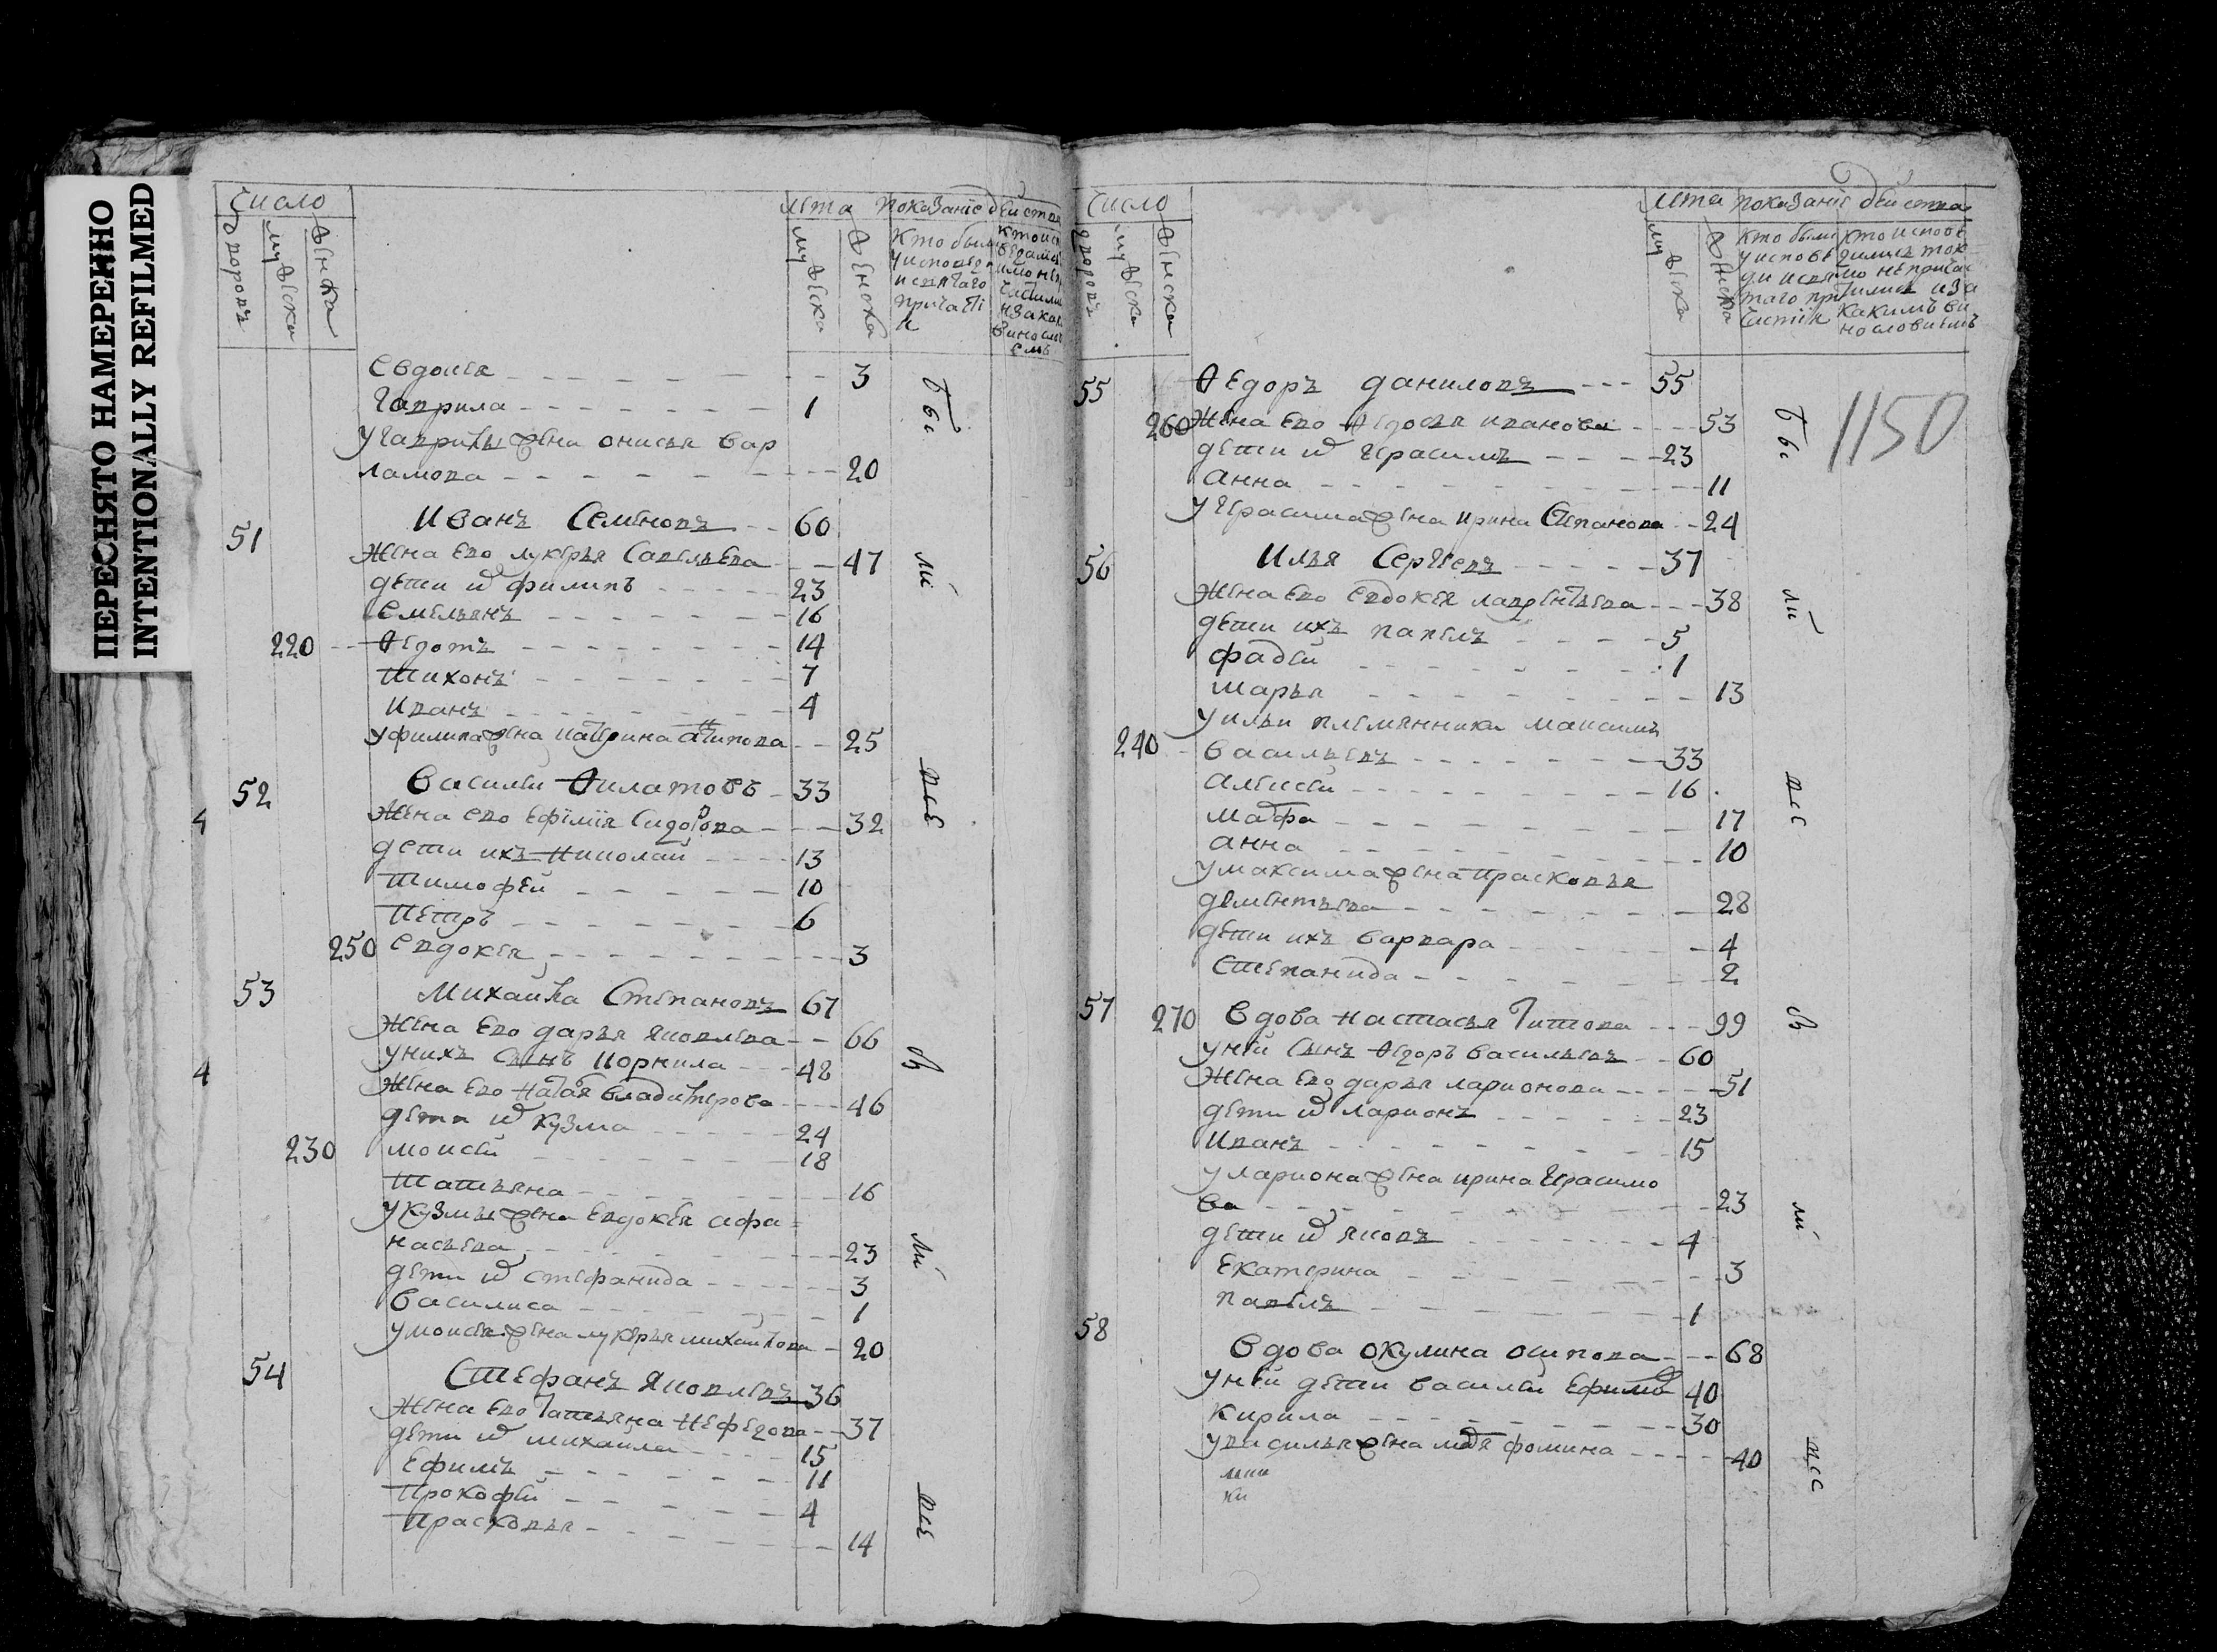 ПЕРЕСНЯТО НАМЕРЕННО
INTENTIONALLY REFILMED
число
дворовъ
мужеска
женска
лѣта
мужеска
женска
показаніе дѣйства
кто были
у исповѣди
и святаго
причасті
я
Евдокѣя 3
Гаврила 1
у Гаврилы жена онисья Вар
ламова 20
51 Иванъ Семеновъ 60
жена ево лукерья Савельева 47
дети ѿ филипъ 23
Емельянъ 16
220 Ѳедотъ 14
Тихонъ 7
Иванъ 4
у филипа жена Катерина Антипова 25
52 Василеи Ѳилатовъ 33
жена ево Ефимія Сидорова 32
дети ихъ Николаи 13
Тимофеи 10
Петръ 6
250 Евдокея 3
53 Михаила Степановъ 67
жена ево дарья Яковлева 66
у нихъ сынъ Корнила 48
жена ево Наталя Владимерова 46
дети ѿ Кузма 24
230 Моисеи 18
Татьяна 16
у Кузмы жена Евдокея афа
насьева 23
дети ѿ стефанида 3
Василиса 1
у моисея жена лукерья михаилова 20
54 Стефанъ Яковлевъ 36
жена ево Татьяна Нефедова 37
дети ѿ михаила 15
Ефимъ 11
Прокофеи 4
Прасковья 14
были всѣ
4
4
число
дворовъ
мужеска
женска
лѣта
мужеска
женска
показаніе дѣйства
кто были
у исповѣ
ди и свя
таго при
частія
кто исповѣ
дились ток
мо не прича
тились и за
какимъ ви
нословиемъ
1150
55 Ѳедоръ даниловъ 55
260 жена ево Ѳедосья иванова 53
дети ѿ Герасимъ 23
анна 11
у Герасима жена ирина Степанова 24
56 Илья Сергеевъ 37
жена ево евдокея лаврентьева 38
дети ихъ павелъ 5
фадеи 1
марья 13
у ильи племянники максимъ
240 Васильевъ 33
алексеи 16
марфа 17
анна 10
у максима жена Прасковья
дементьева 28
дети ихъ варвара 4
Степанида 2
57 270 вдова настасья Титова 99
у неи сынъ Ѳедоръ васильевъ 60
жена ево дарья ларионова 51
дети ѿ ларионъ 23
Иванъ 15
у лариона жена ирина Герасимо
ва 23
дети ѿ яковъ 4
Екатерина 3
павелъ 1
58 вдова окулина осипова 68
у неи дети василеи Ефимов 40
Кирила 30
у василья жена фомина 40